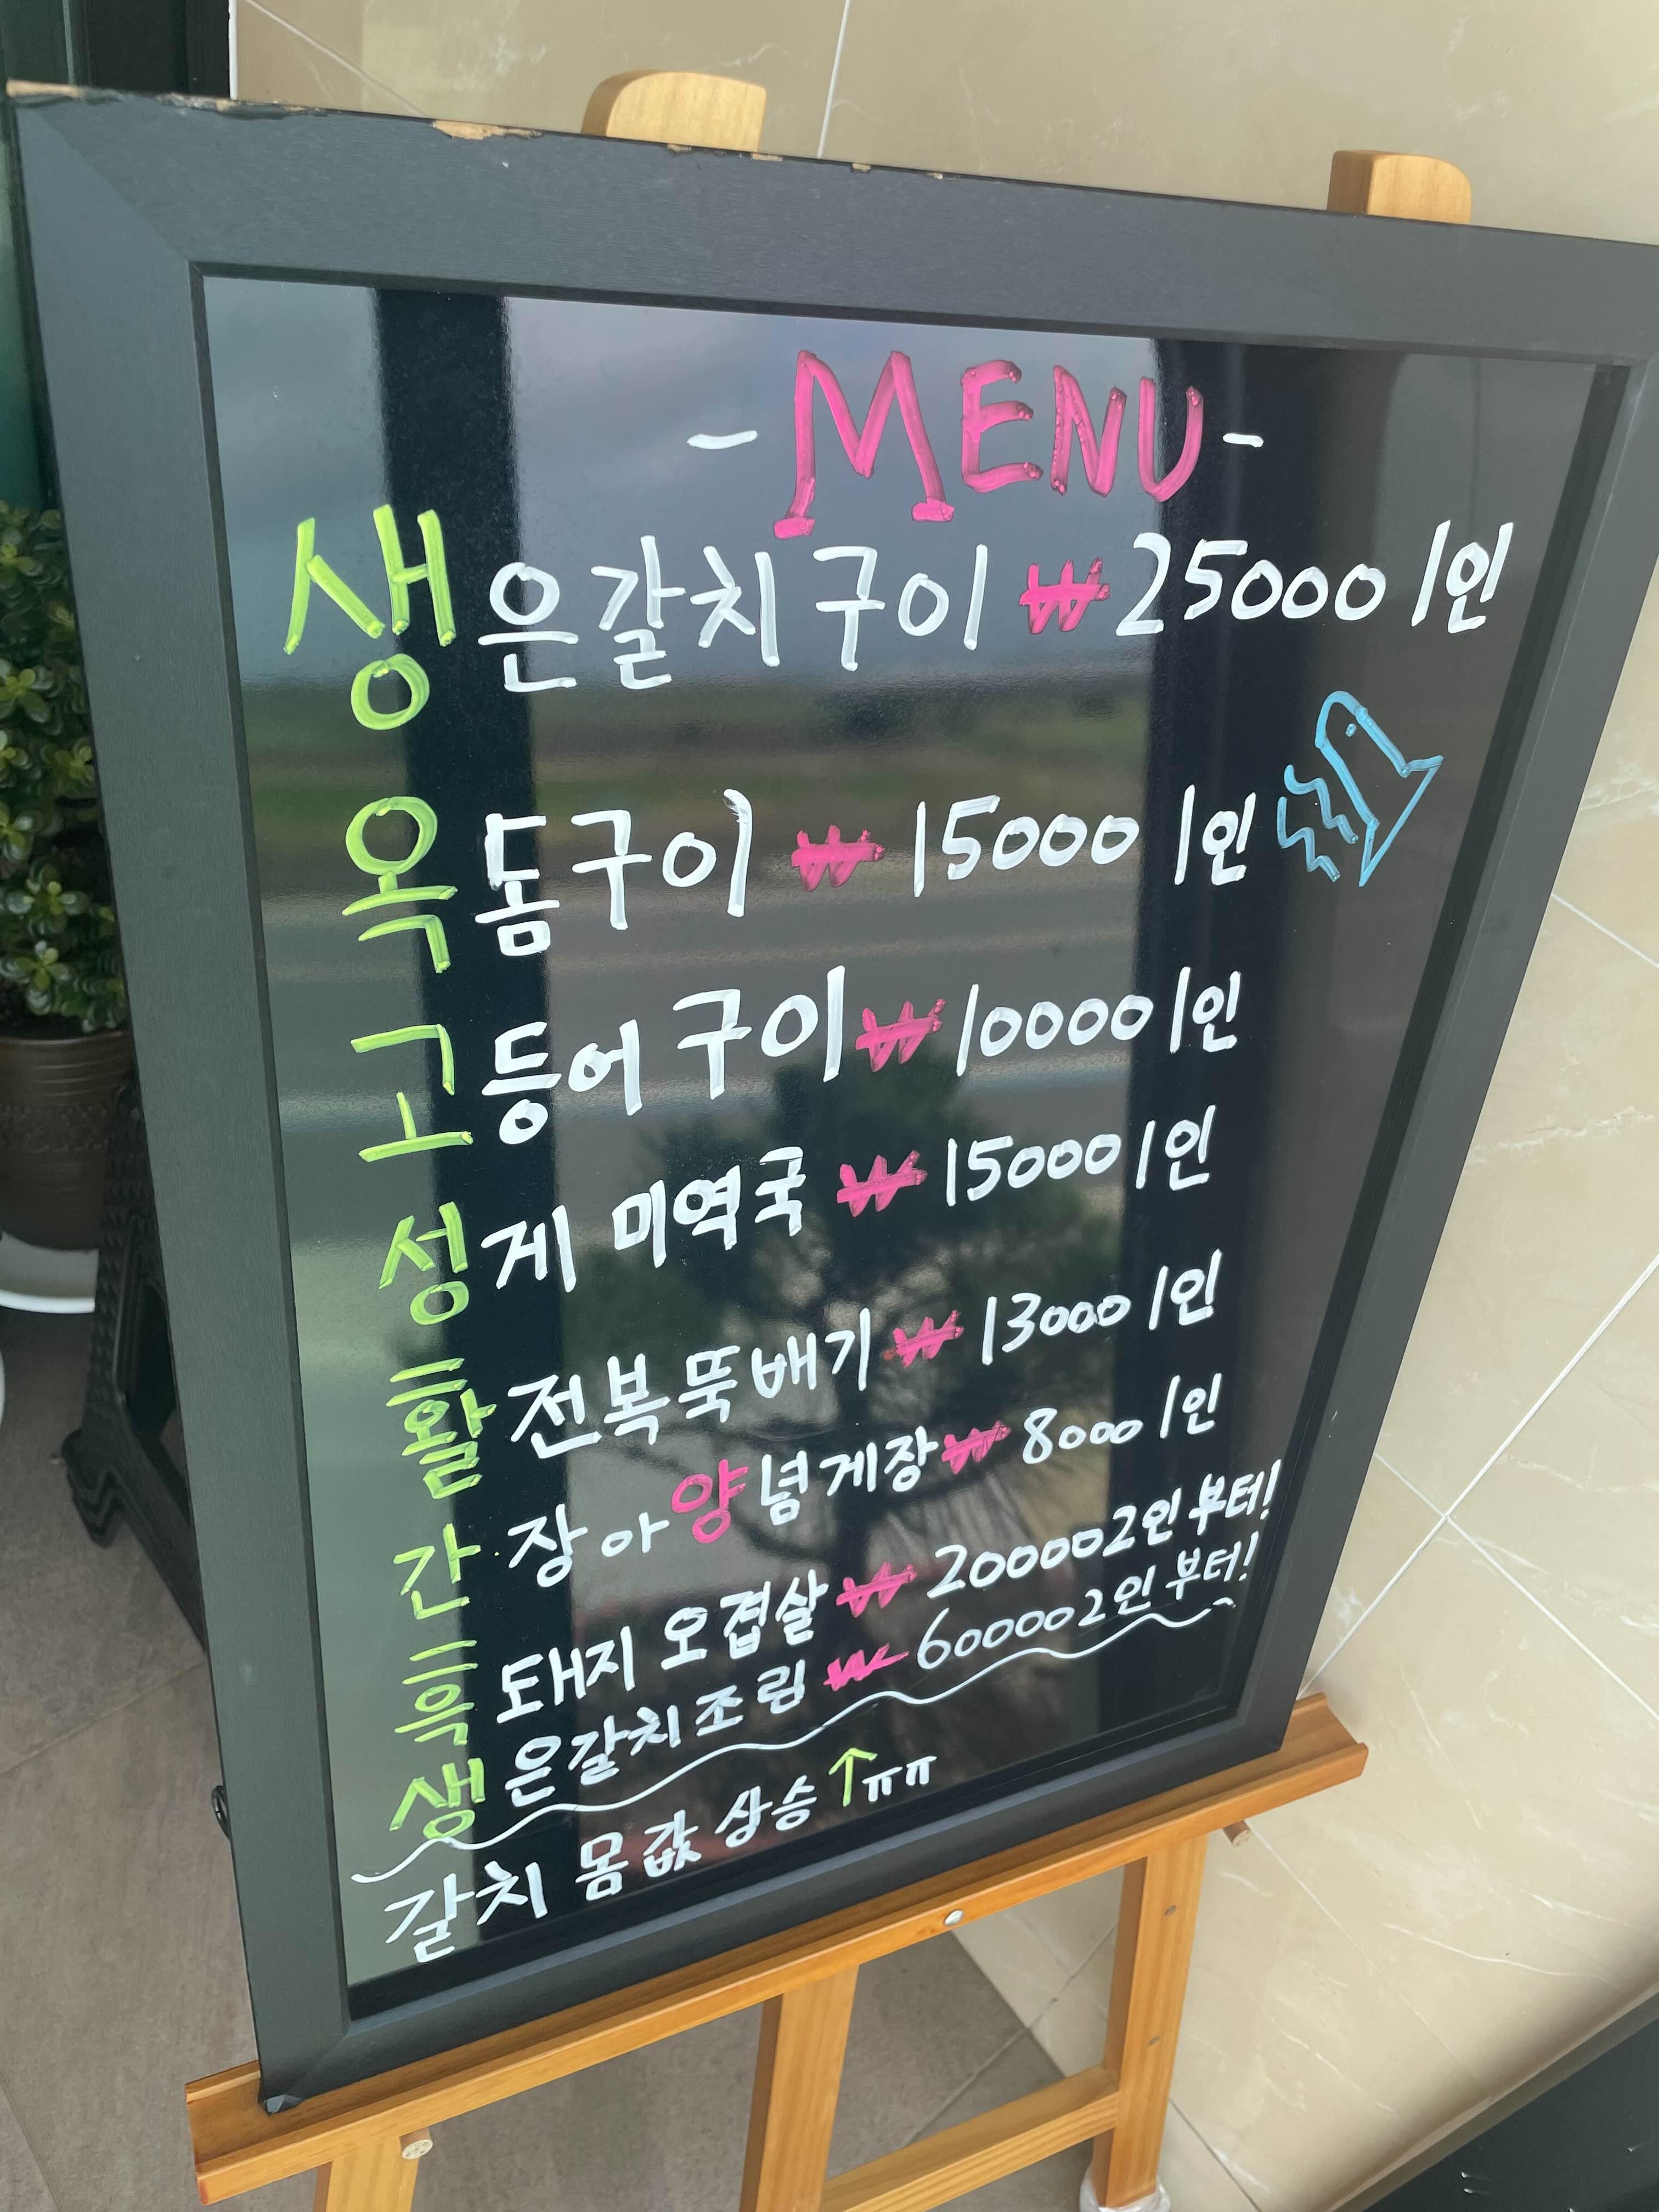 - MENU -
생은갈치구이 ₩25000 1인
옥돔구이 ₩15000 1인
고등어구이 ₩10000 1인
성게 미역국 ₩15000 1인
활전복뚝배기 ₩13000 1인
간장아양념게장 ₩8000 1인
흑돼지 오겹살 ₩20000 2인 부터!
생은갈치조림 ₩60000 2인 부터!
갈치 몸값 상승↑ㅠㅠ